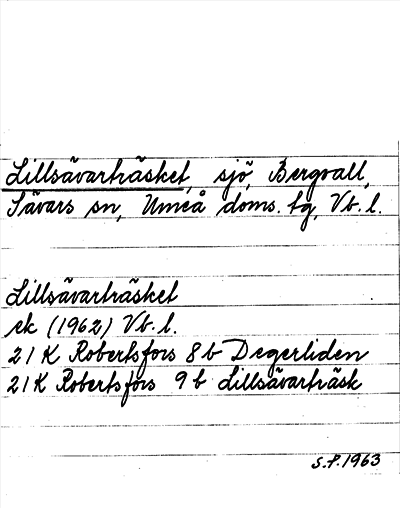 Lillsävarträsket, sjö, Bergvall,
Sävars sn, Umeå doms. tg, Vb. l.
Lillsävarträsket
ek (1962) Vb. l.
21 K Robertsfors 8 b Degerliden
21 K Robertsfors 9 b Lillsävarträsk
S.F. 1963